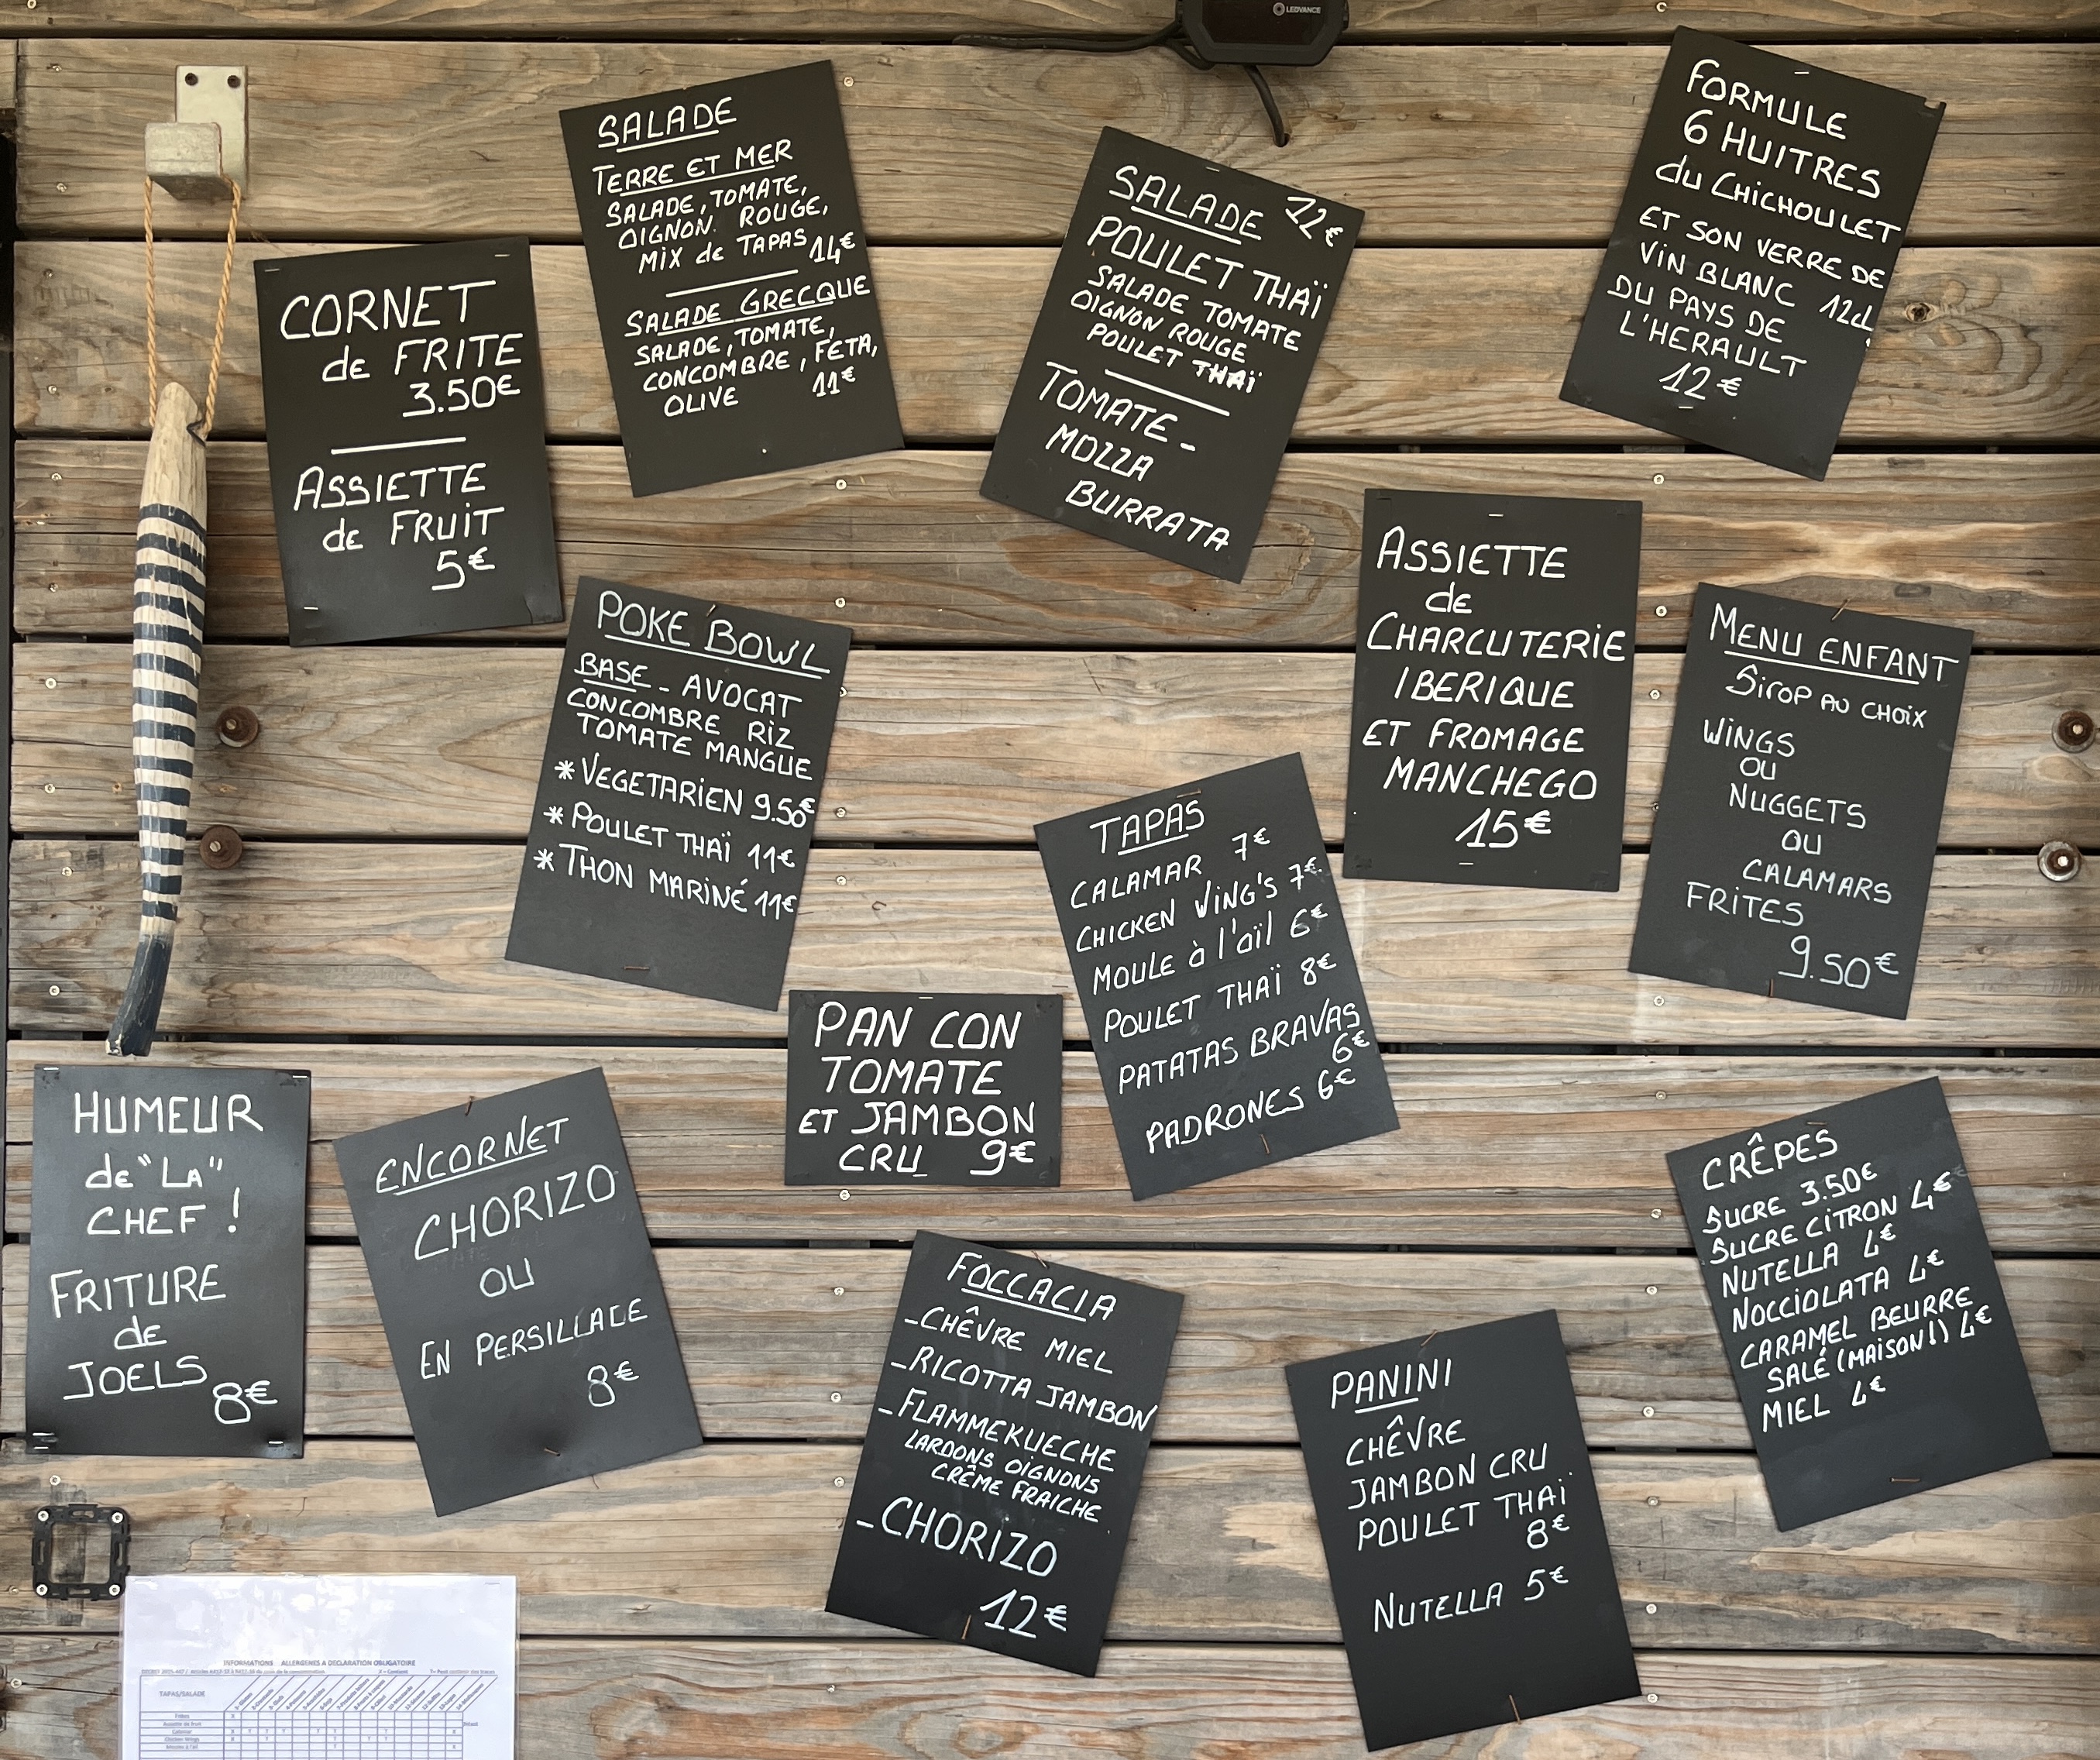 LEDVANCE
CORNET
de FRITE
3.50€
ASSIETTE
de FRUIT
5€
SALADE
TERRE ET MER
SALADE, TOMATE,
OIGNON. ROUGE,
MIX de TAPAS 14€
SALADE GRECQUE
SALADE, TOMATE,
CONCOMBRE, FETA,
OLIVE 11€
SALADE 12€
POULET THAÏ
SALADE TOMATE
OIGNON ROUGE
POULET THAÏ
TOMATE -
MOZZA
BURRATA
FORMULE
6 HUITRES
du CHICHOULET
ET SON VERRE DE
VIN BLANC 12cL
DU PAYS DE
L'HERAULT
12€
POKE BOWL
BASE - AVOCAT
CONCOMBRE RIZ
TOMATE MANGUE
* VEGETARIEN 9.50€
* POULET THAÏ 11€
* THON MARINÉ 11€
ASSIETTE
de
CHARCUTERIE
IBERIQUE
ET FROMAGE
MANCHEGO
15€
MENU ENFANT
SIROP AU CHOIX
WINGS
OU
NUGGETS
OU
CALAMARS
FRITES
9.50€
TAPAS
CALAMAR 7€
CHICKEN WING'S 7€
MOULE à l'aïl 6€
POULET THAÏ 8€
PATATAS BRAVAS
6€
PADRONES 6€
PAN CON
TOMATE
ET JAMBON
CRU 9€
HUMEUR
de "LA"
CHEF !
FRITURE
de
JOELS
8€
ENCORNET
CHORIZO
OU
EN PERSILLADE
8€
FOCCACIA
- CHÊVRE MIEL
- RICOTTA JAMBON
- FLAMMEKUECHE
LARDONS OIGNONS
CRÊME FRAICHE
- CHORIZO
12€
PANINI
CHÊVRE
JAMBON CRU
POULET THAÏ
8€
NUTELLA 5€
CRÊPES
SUCRE 3.50€
SUCRE CITRON 4€
NUTELLA 4€
NOCCIOLATA 4€
CARAMEL BEURRE
SALÉ (MAISON!) 4€
MIEL 4€
INFORMATIONS ALLERGENES A DECLARATION OBLIGATOIRE
TAPAS/SALADE
Frites
Calamar
Chicken Wings